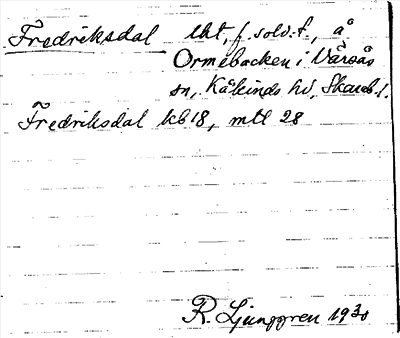 Fredriksdal lht, f. sold:t., å
Ormebacken i Våreås
sn, Kåkinds hd, Skarab. l.
Fredriksdal kb 18, mtl 28
R. Ljunggren 1930